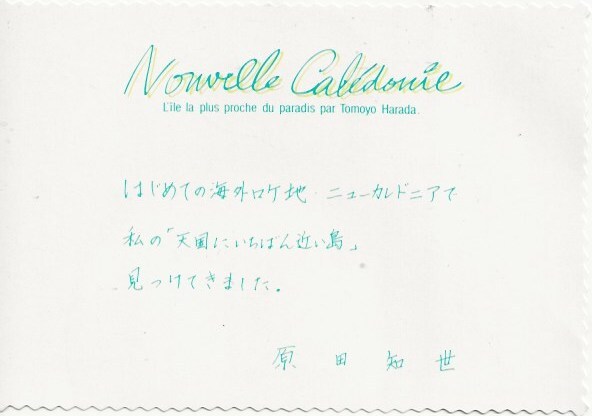 Nouvelle Calédonie
L'île la plus proche du paradis par Tomoyo Harada.
はじめての海外ロケ地・ニューカレドニアで
私の「天国にいちばん近い島」
見つけてきました。
原田知世